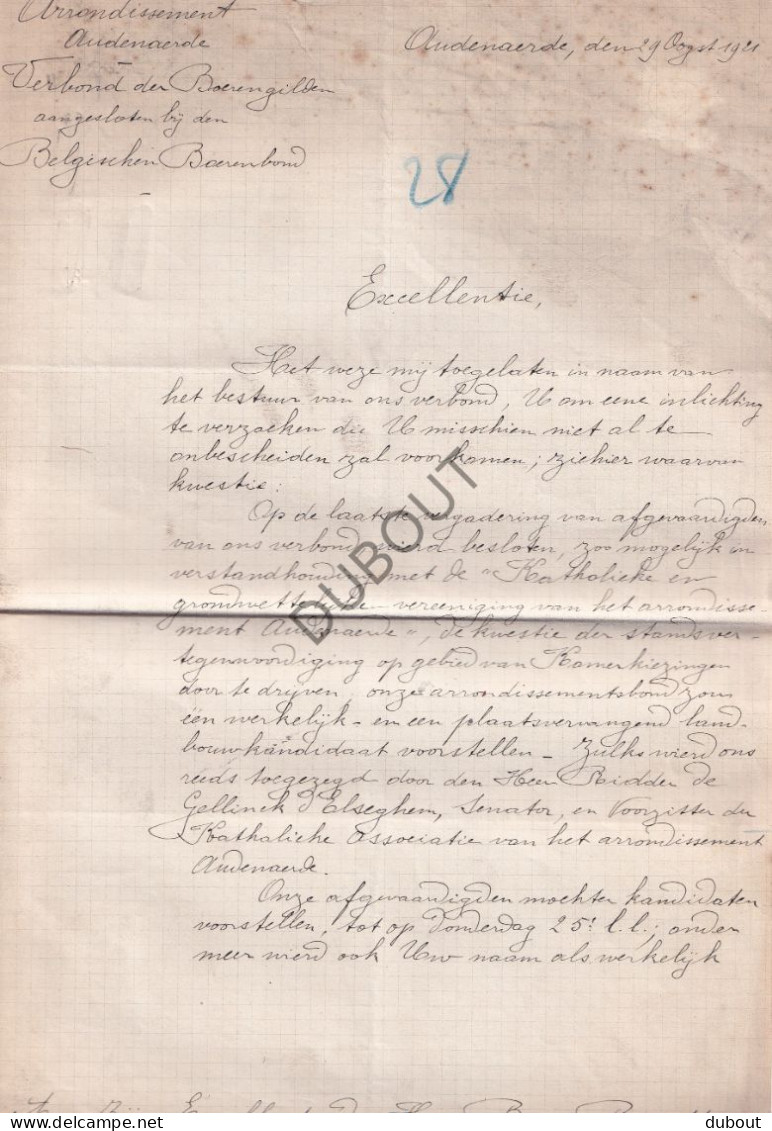 Arrondissement
Audenaerde
Audenaerde, den 29 Oogst 1921
Verbond der Boerengilden
aangesloten bij den
Belgischen Boerenbond
28
Excellentie,
Het weze mij toegelaten in naam van
het bestuur van ons verbond, U om eene inlichting
te verzoeken die U misschien niet al te
onbescheiden zal voorkomen; ziehier waarvan
kwestie:
Op de laatste vergadering van afgevaardigden
van ons verbond wierd besloten, zoo mogelijk in
verstandhouding met de "Katholieke en
grondwettelijke vereeniging van het arrondisse-
ment Audenaerde", de kwestie der standsver-
tegenwoordiging op gebied van Kamerkiezingen
door te drijven; onze arrondissementsbond zou
één werkelijk- en een plaatsvervangend land-
bouwkandidaat voorstellen - Zulks wierd ons
reeds toegezegd door den Heer Ridder de
Gellinck d'Elseghem, Senator, en Voorzitter der
Katholieke Associatie van het arrondissement
Audenaerde.
Onze afgevaardigden mochten kandidaten
voorstellen, tot op donderdag 25n l.l.; onder
meer wierd ook Uw naam als werkelijk
DUBOUT
delcampe.net
dubout